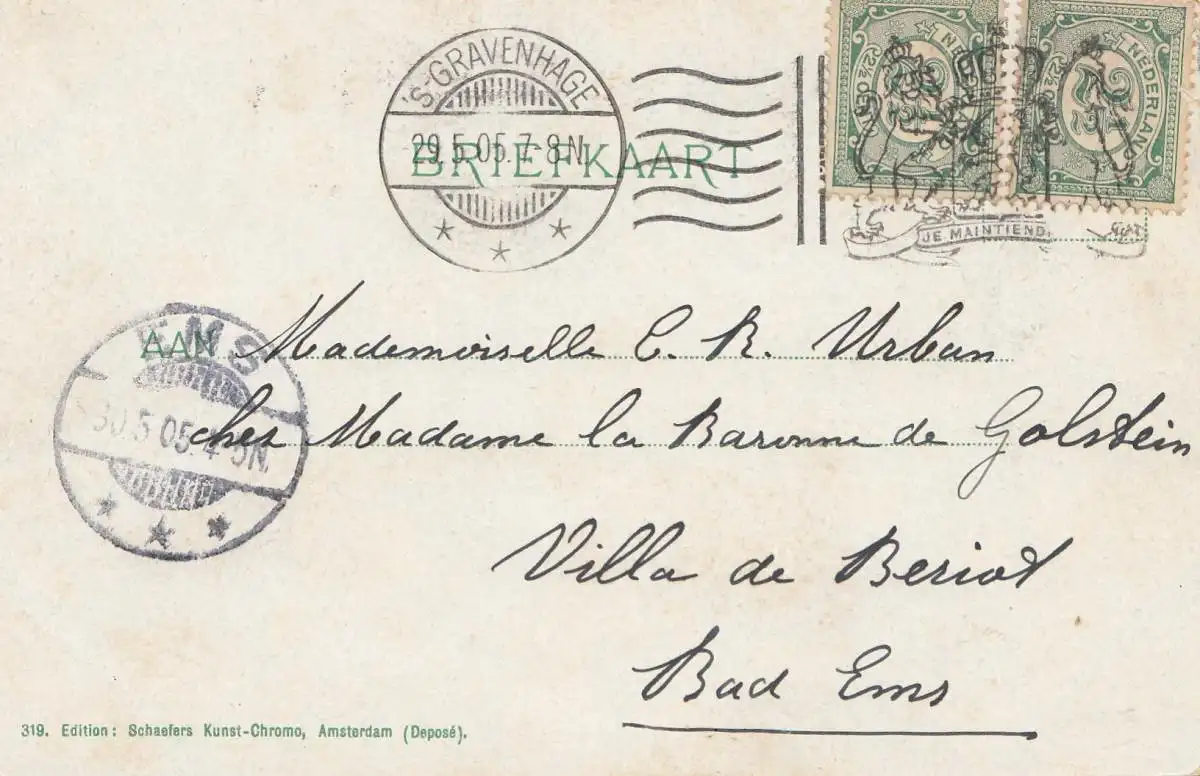 'S-GRAVENHAGE
29.5.05.7-8N.
BRIEFKAART
NEDERLAND
2½
NEDERLAND
2½
JE MAINTIENDRAI
EMS
30.5.05.4-5N.
AAN Mademoiselle C. R. Urban
chez Madame la Baronne de Golstein
Villa de Beriot
Bad Ems
319. Edition: Schaefers Kunst-Chromo, Amsterdam (Deposé).